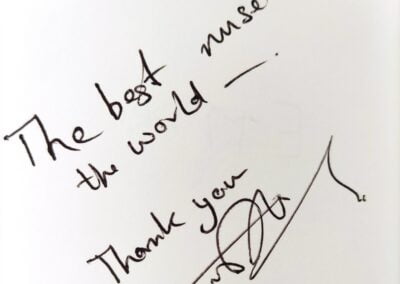 The best nuse
the world —.
Thank you